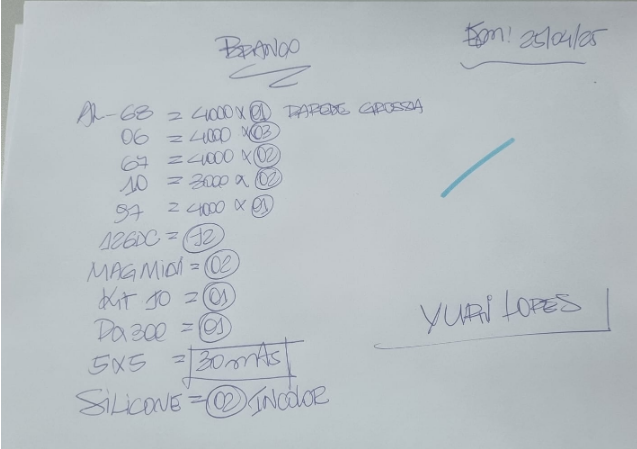 BRANCO
Em: 25/04/25
AL-68 = 4000 x 01 PAREDE GROSSA
06 = 4000 x 03
67 = 4000 x 02
10 = 3000 x 02
97 = 4000 x 01
126DC = 12
MAGMION = 02
Kit 10 = 01
DX300 = 01
5x5 = 30 mts
SiLiCONE = 02 INCOLOR
YURi LOPES